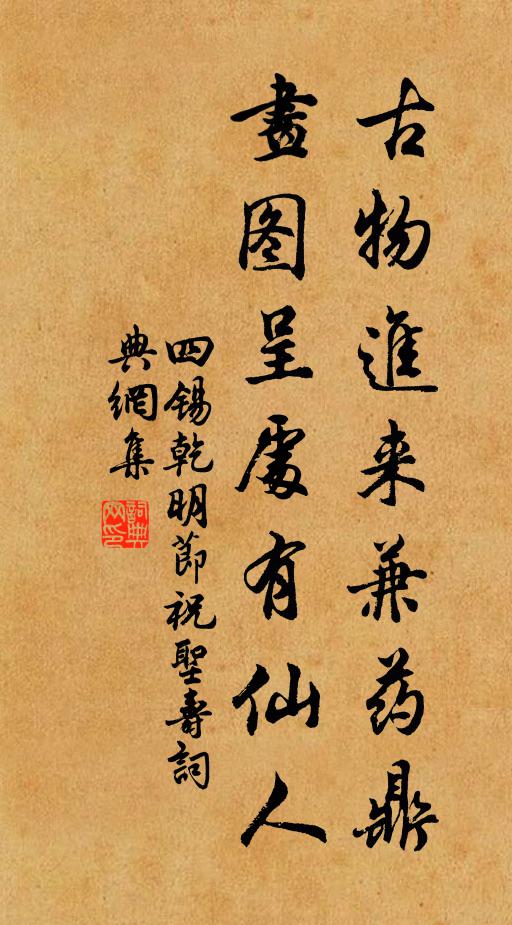 古物進来兼药鼎
畫图呈處有仙人
四锡乾明節祝聖壽詞
典網集
詞典
网印